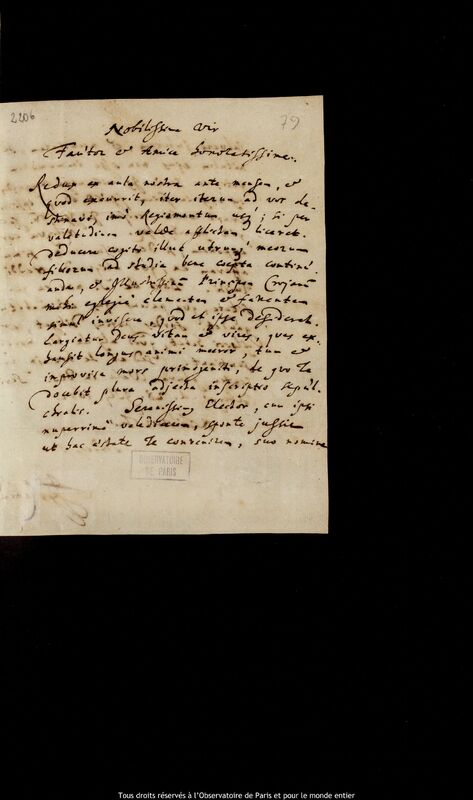 2206
79
Nobilissime Vir
Fautor et Amice honoratissime.
Redux ex aula nostra ante mensem, et
quod excurrit, iter iterum ad vos de-
stinavi, imo Regiomontum usq; si per
valetudinem valde afflictam liceret.
Deducere cogito illuc utrumq; meorum
filiorum ad studia bene coepta continu-
anda, et Illustrissimum Principem Croÿum
mihi clementem et faventem
simul invisere, quod et ipse desiderat.
Largiatur Deus vitam et vires, quas ex-
hausit longus animi moeror, tum et
improvisa mors primogeniti, de quo Te
docebit plura adjecta inscriptio sepul-
chralis. Serenissimus Elector, cum ipsi
nuperrime valedicerem, sponte jussit
ut hac aestate Te convenirem, suo nomine
OBSERVATOIRE
DE PARIS
Tous droits réservés à l'Observatoire de Paris et pour le monde entier